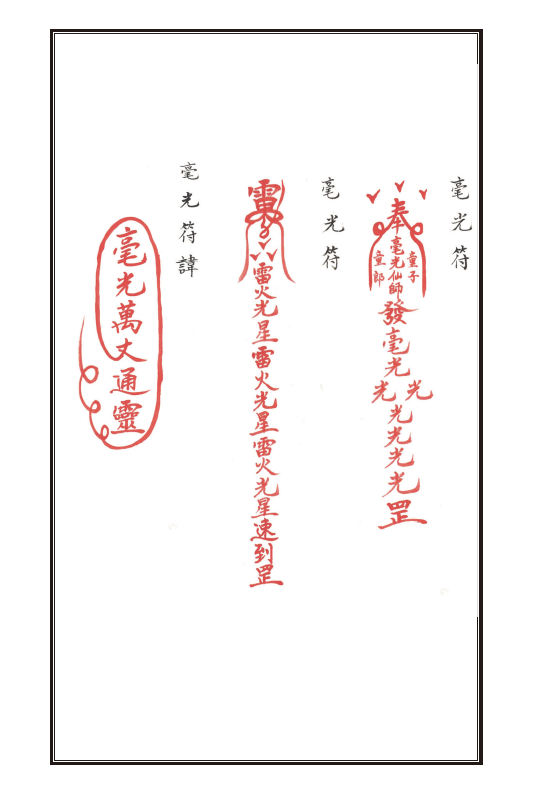 毫光符
奉
毫光仙師
童子
童郎
發毫光
光光
光光光光罡
毫光符
雷火光星雷火光星雷火光星速到罡
毫光符諱
毫光萬丈通靈